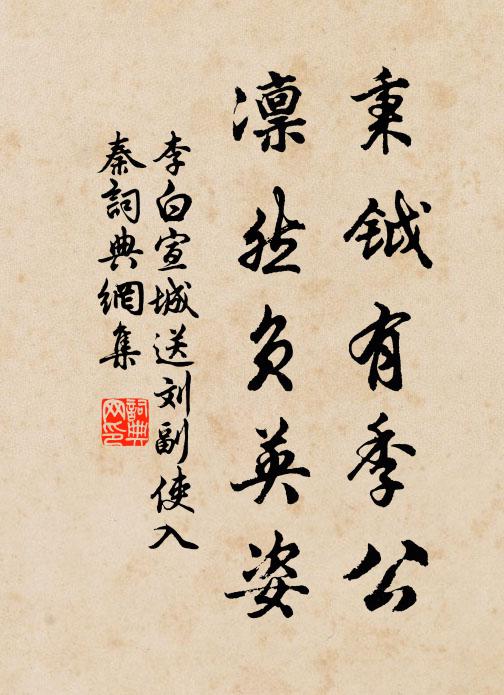 秉钺有季公
凛然负英姿
李白宣城送刘副使入
秦詞典網集
詞典
网印